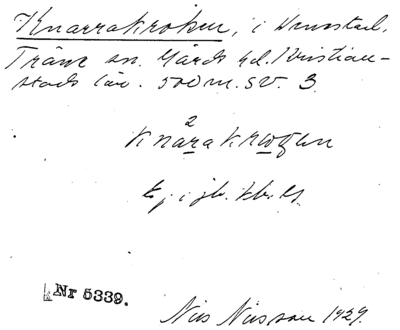 Knarrakroken, i Vrunstad,
Träne sn. Gärds hd. Kristian-
stads län. 500 m. SV. 3.
2
knarakrogen
Ej i jb.
Nr 5339.
Nils Nilsson 1929.